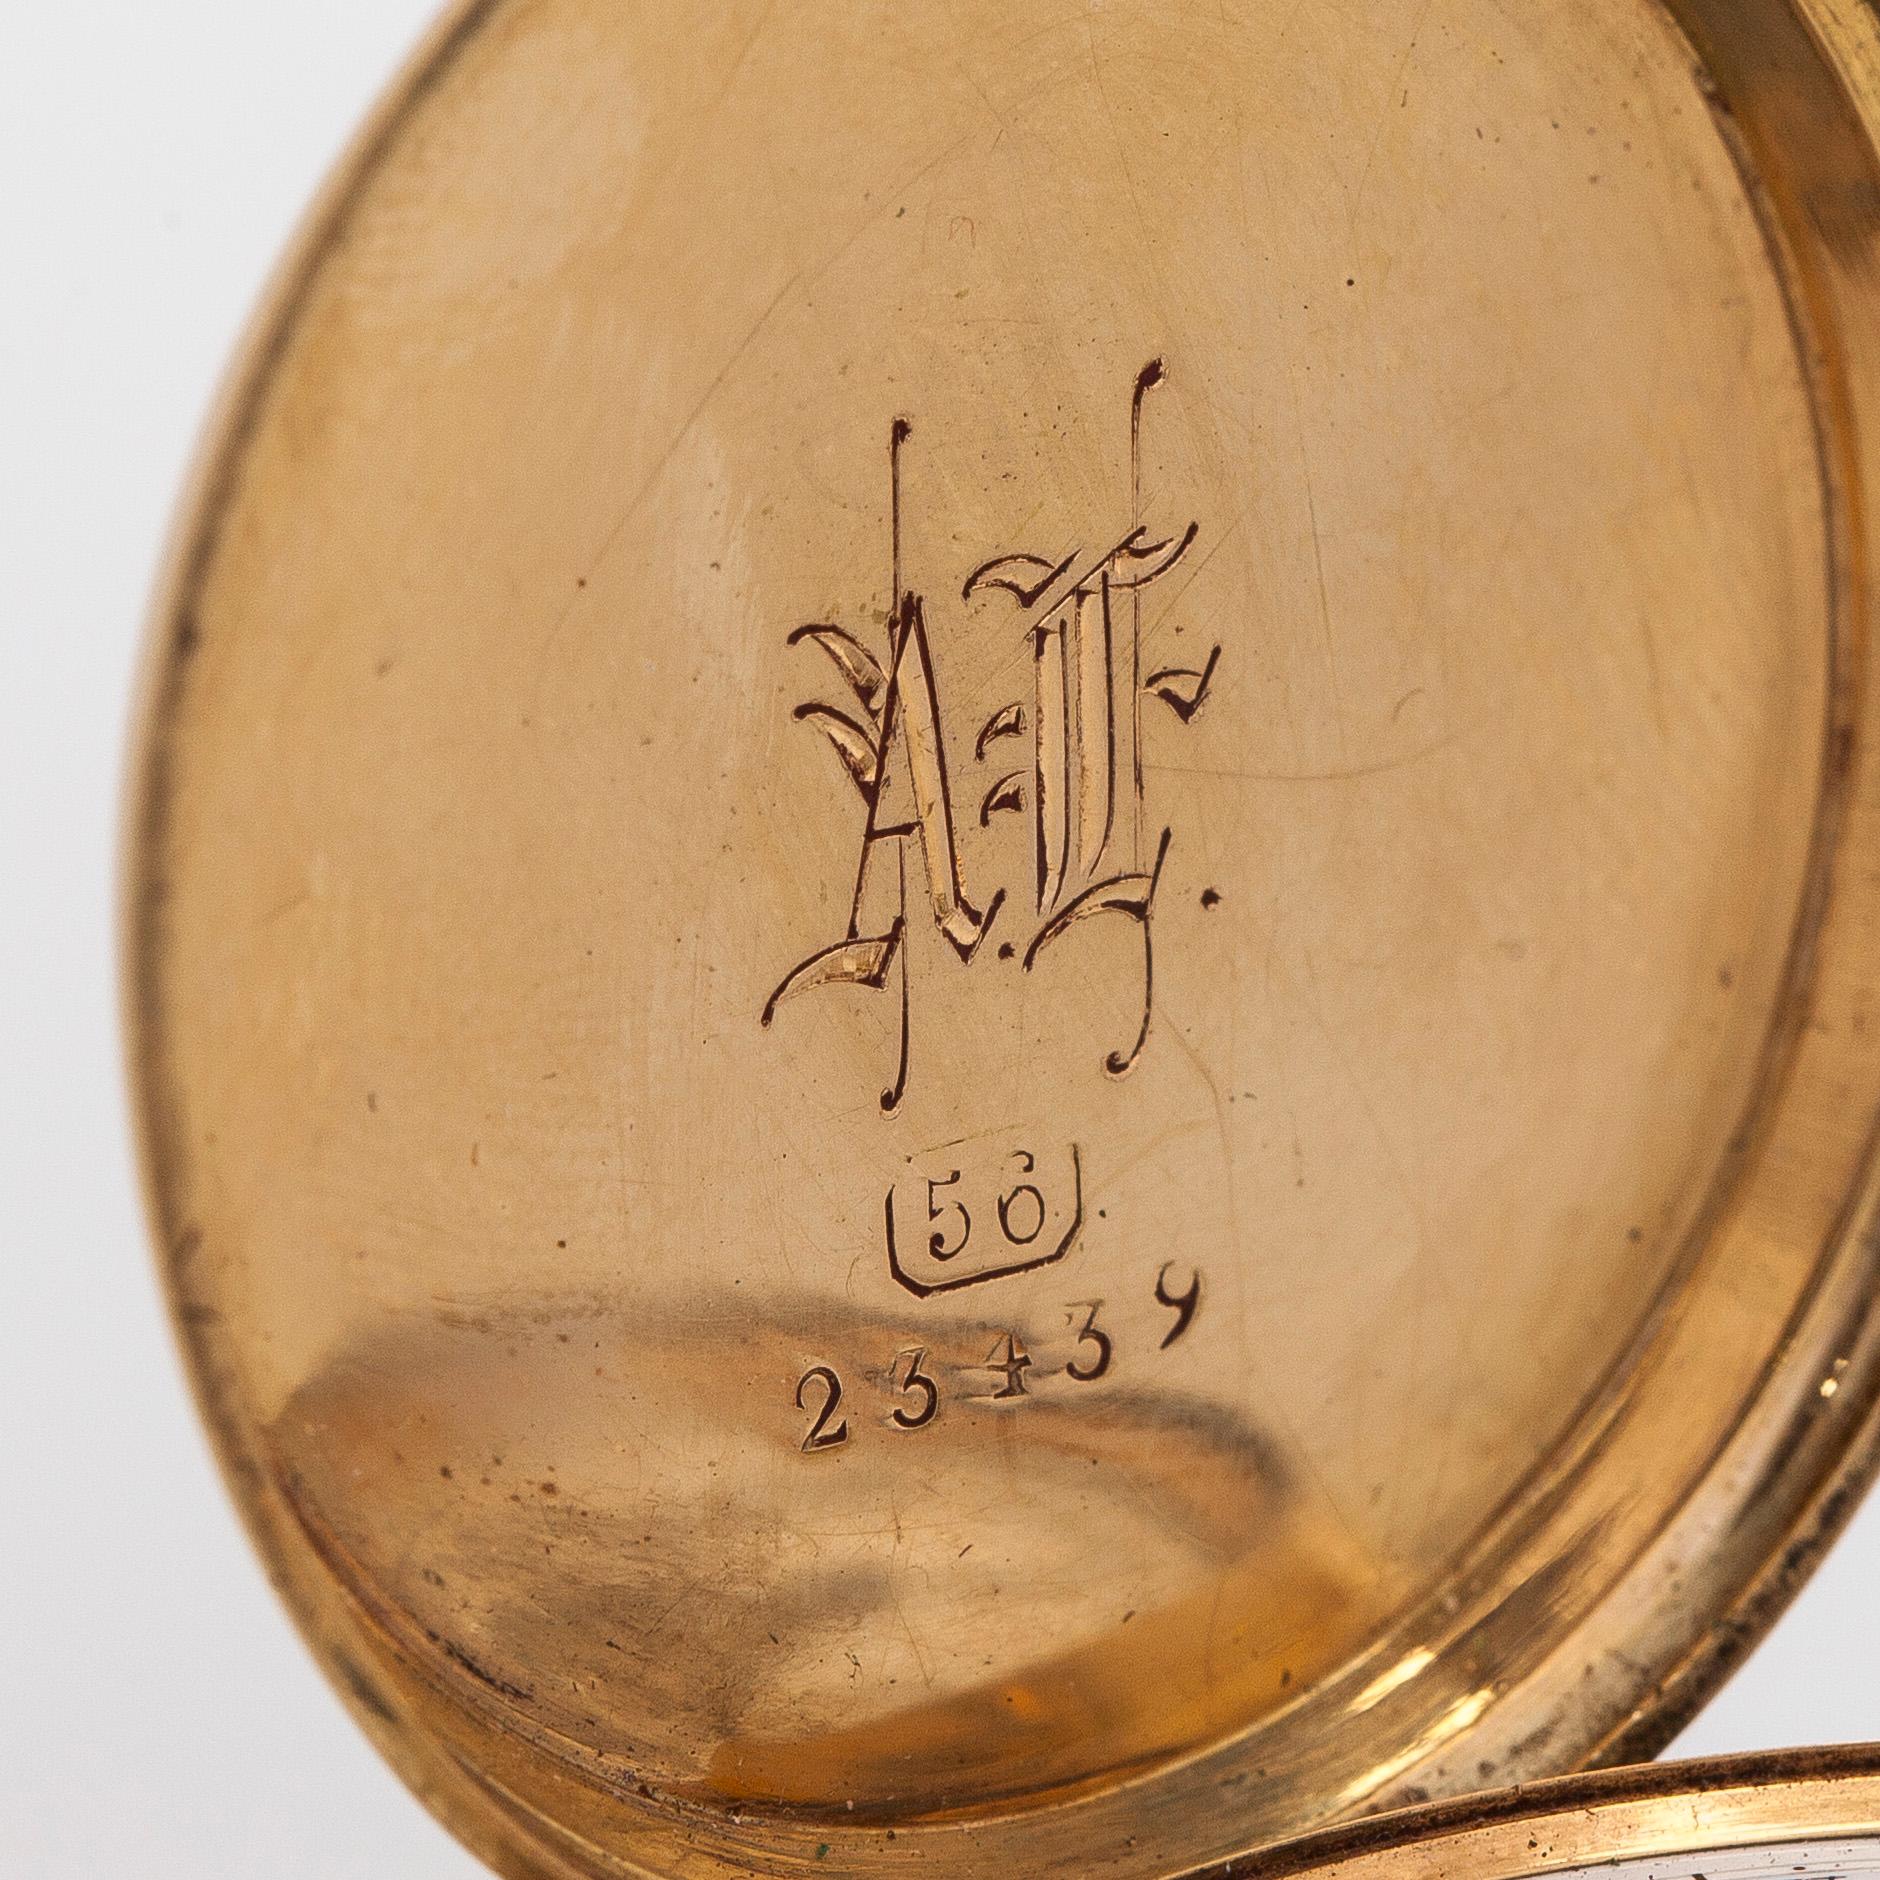 A. T.
56
23439